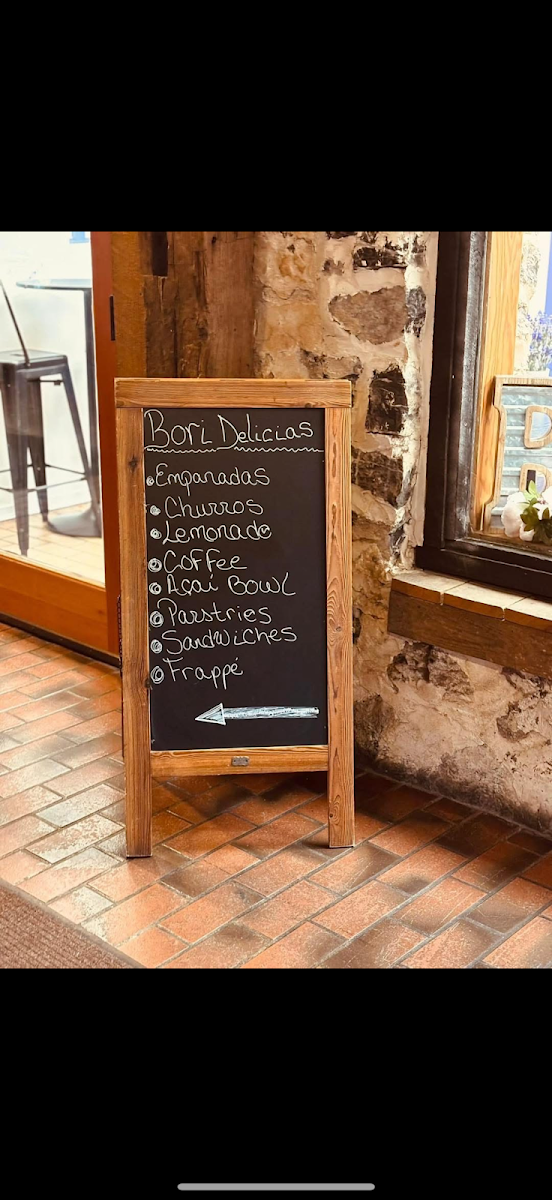 Bori Delicias
Empanadas
Churros
Lemonade
Coffee
Açaí Bowl
Parstries
Sandwiches
Frappé